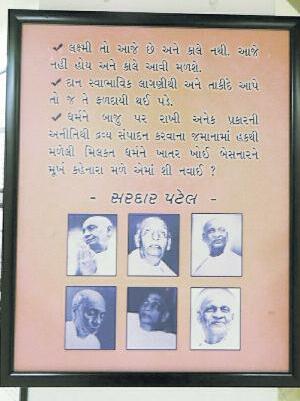 ✔ લક્ષ્મી તો આજે છે અને કાલે નથી. આજે
નહીં હોય અને કાલે આવી મળશે.
✔ દાન સ્વાભાવિક લાગણીથી અને તાકીદે આપે
તો જ તે ફળદાયી થઈ પડે.
✔ ધર્મને બાજુ પર રાખી અનેક પ્રકારની
અનીતિથી દ્રવ્ય સંપાદન કરવાના જમાનામાં હકથી
મળેલી મિલકત ધર્મને ખાતર ખોઈ બેસનારને
મુર્ખ કહેનારા મળે એમાં શી નવાઈ ?
- સરદાર પટેલ -